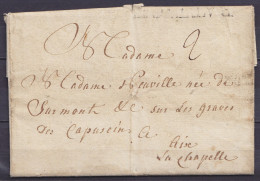 Madame 2
Madame
née de
Surmont &c sur les graves
des Capucins &
Aix
La Chapelle